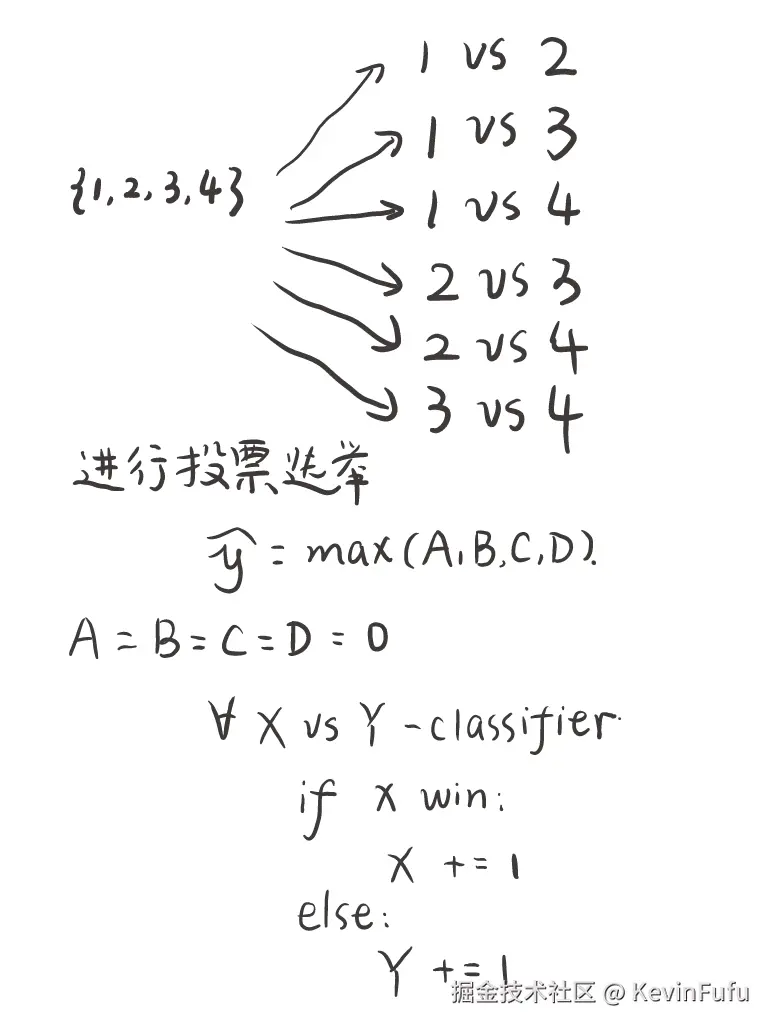 1 vs 2
1 vs 3
{1,2,3,4}
1 vs 4
2 vs 3
2 vs 4
3 vs 4
进行投票选举
ŷ = max(A,B,C,D).
A = B = C = D = 0
∀ X vs Y -classifier.
if X win:
X += 1
else:
Y += 1
掘金技术社区 @ KevinFufu